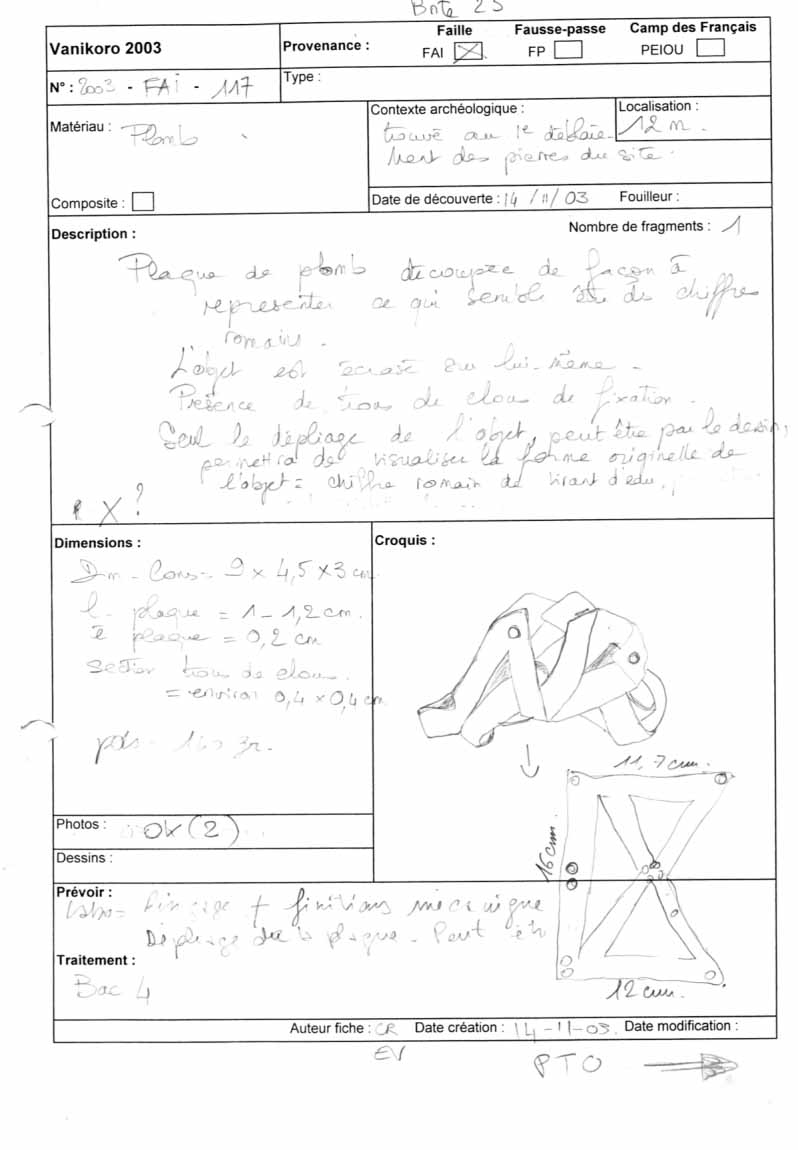 Boite 25
Vanikoro 2003
Provenance :
Faille
FAI
Fausse-passe
FP
Camp des Français
PEIOU
N° : 2003 - FAI - 117
Type :
Matériau : Plomb
Composite :
Contexte archéologique :
trouvé au 1e déblaie-
ment des pierres du site.
Localisation :
12 m.
Date de découverte : 14 / 11 / 03
Fouilleur :
Description :
Nombre de fragments : 1
Plaque de plomb découpée de façon à
représenter ce qui semble être des chiffres
romains.
L'objet est écrasé sur lui-même.
Présence de trous de clous de fixation.
Seul le dépliage de l'objet, peut être par le dessin,
permettra de visualiser la forme originelle de
l'objet = chiffre romain de tirant d'eau.
X ?
Dimensions :
Dm - Cons = 9 x 4,5 x 3 cm
l - plaque = 1 - 1,2 cm.
é plaque = 0,2 cm
section trous de clous.
= environ 0,4 x 0,4 cm
pds - 160 gr.
Croquis :
11,7 cm.
16 cm.
12 cm.
Photos : OK (2)
Dessins :
Prévoir :
Labo = Rinçage + finitions mécanique
Dépliage de la plaque. Peut êt
Traitement :
Bac 4
Auteur fiche : CR
Date création : 14-11-03.
Date modification :
EV
PTO